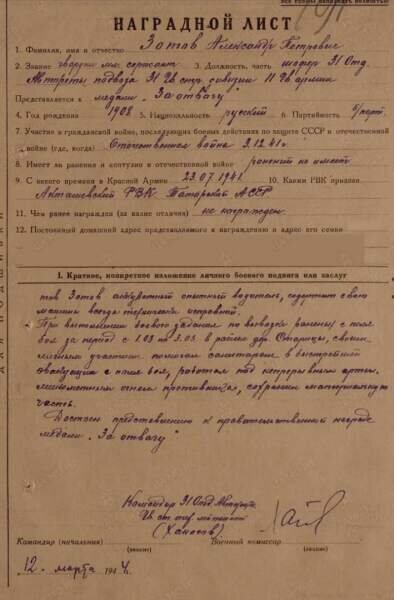 НАГРАДНОЙ ЛИСТ
1. Фамилия, имя и отчество Зотов Александр Петрович
2. Звание гвардии мл. сержант 3. Должность, часть шофер 31 Отд.
Автороты подвоза 31 Гв. стр. дивизии 11 Гв. армии
Представляется к медали "За отвагу"
4. Год рождения 1908 5. Национальность русский 6. Партийность б/парт.
7. Участие в гражданской войне, последующих боевых действиях по защите СССР и отечественной
войне (где, когда) Отечественная война 3.12.41г.
8. Имеет ли ранения и контузии в отечественной войне ранений не имеет
9. С какого времени в Красной Армии 23.07.1941 10. Каким РВК призван
Акташевский РВК Татарской АССР
11. Чем ранее награжден (за какие отличия) не награжден
12. Постоянный домашний адрес представляемого к награждению и адрес его семьи
I. Краткое, конкретное изложение личного боевого подвига или заслуг
тов Зотов аккуратный опытный водитель, содержит свою
машину всегда технически исправной.
При выполнении боевого задания по вывозке раненых с поля
боя за период с 1.03 по 3.03 в районе дер. Старицы, своим
личным участием помогал санитарам в быстрейшей
эвакуации с поля боя, работал под непрерывным артил.
минометным огнем противника, сохранил материальную
часть.
Достоин представления к правительственной награде
медали "За отвагу"
Командир 31 Отд Автороты
Гв. ст. тех. лейтенант
Командир (начальник)
(звание)
Военный комиссар
(звание)
12. марта 194 г.